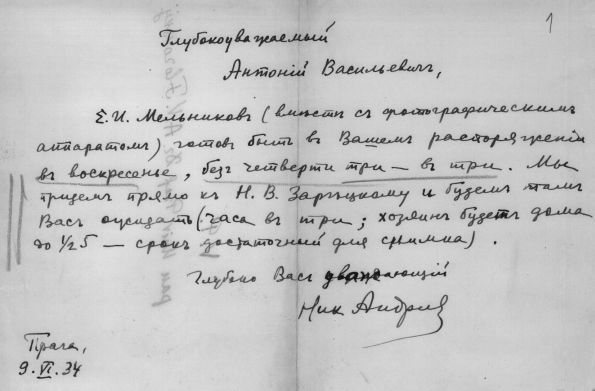 1
Глубокоуважаемый
Антоній Васильевичъ,
Е. И. Мельниковъ (вмѣстѣ съ фотографическимъ
аппаратомъ) готовъ быть въ Вашемъ распоряженіи
въ воскресенье, безъ четверти три — въ три. Мы
придемъ прямо къ Н. В. Зарѣцкому и будемъ тамъ
Васъ ожидать (часа въ три; хозяинъ будетъ дома
до ½5 — срокъ достаточный для снимка).
Глубоко Васъ уважающій
Ник Андрее
Прага,
9. VI. 34